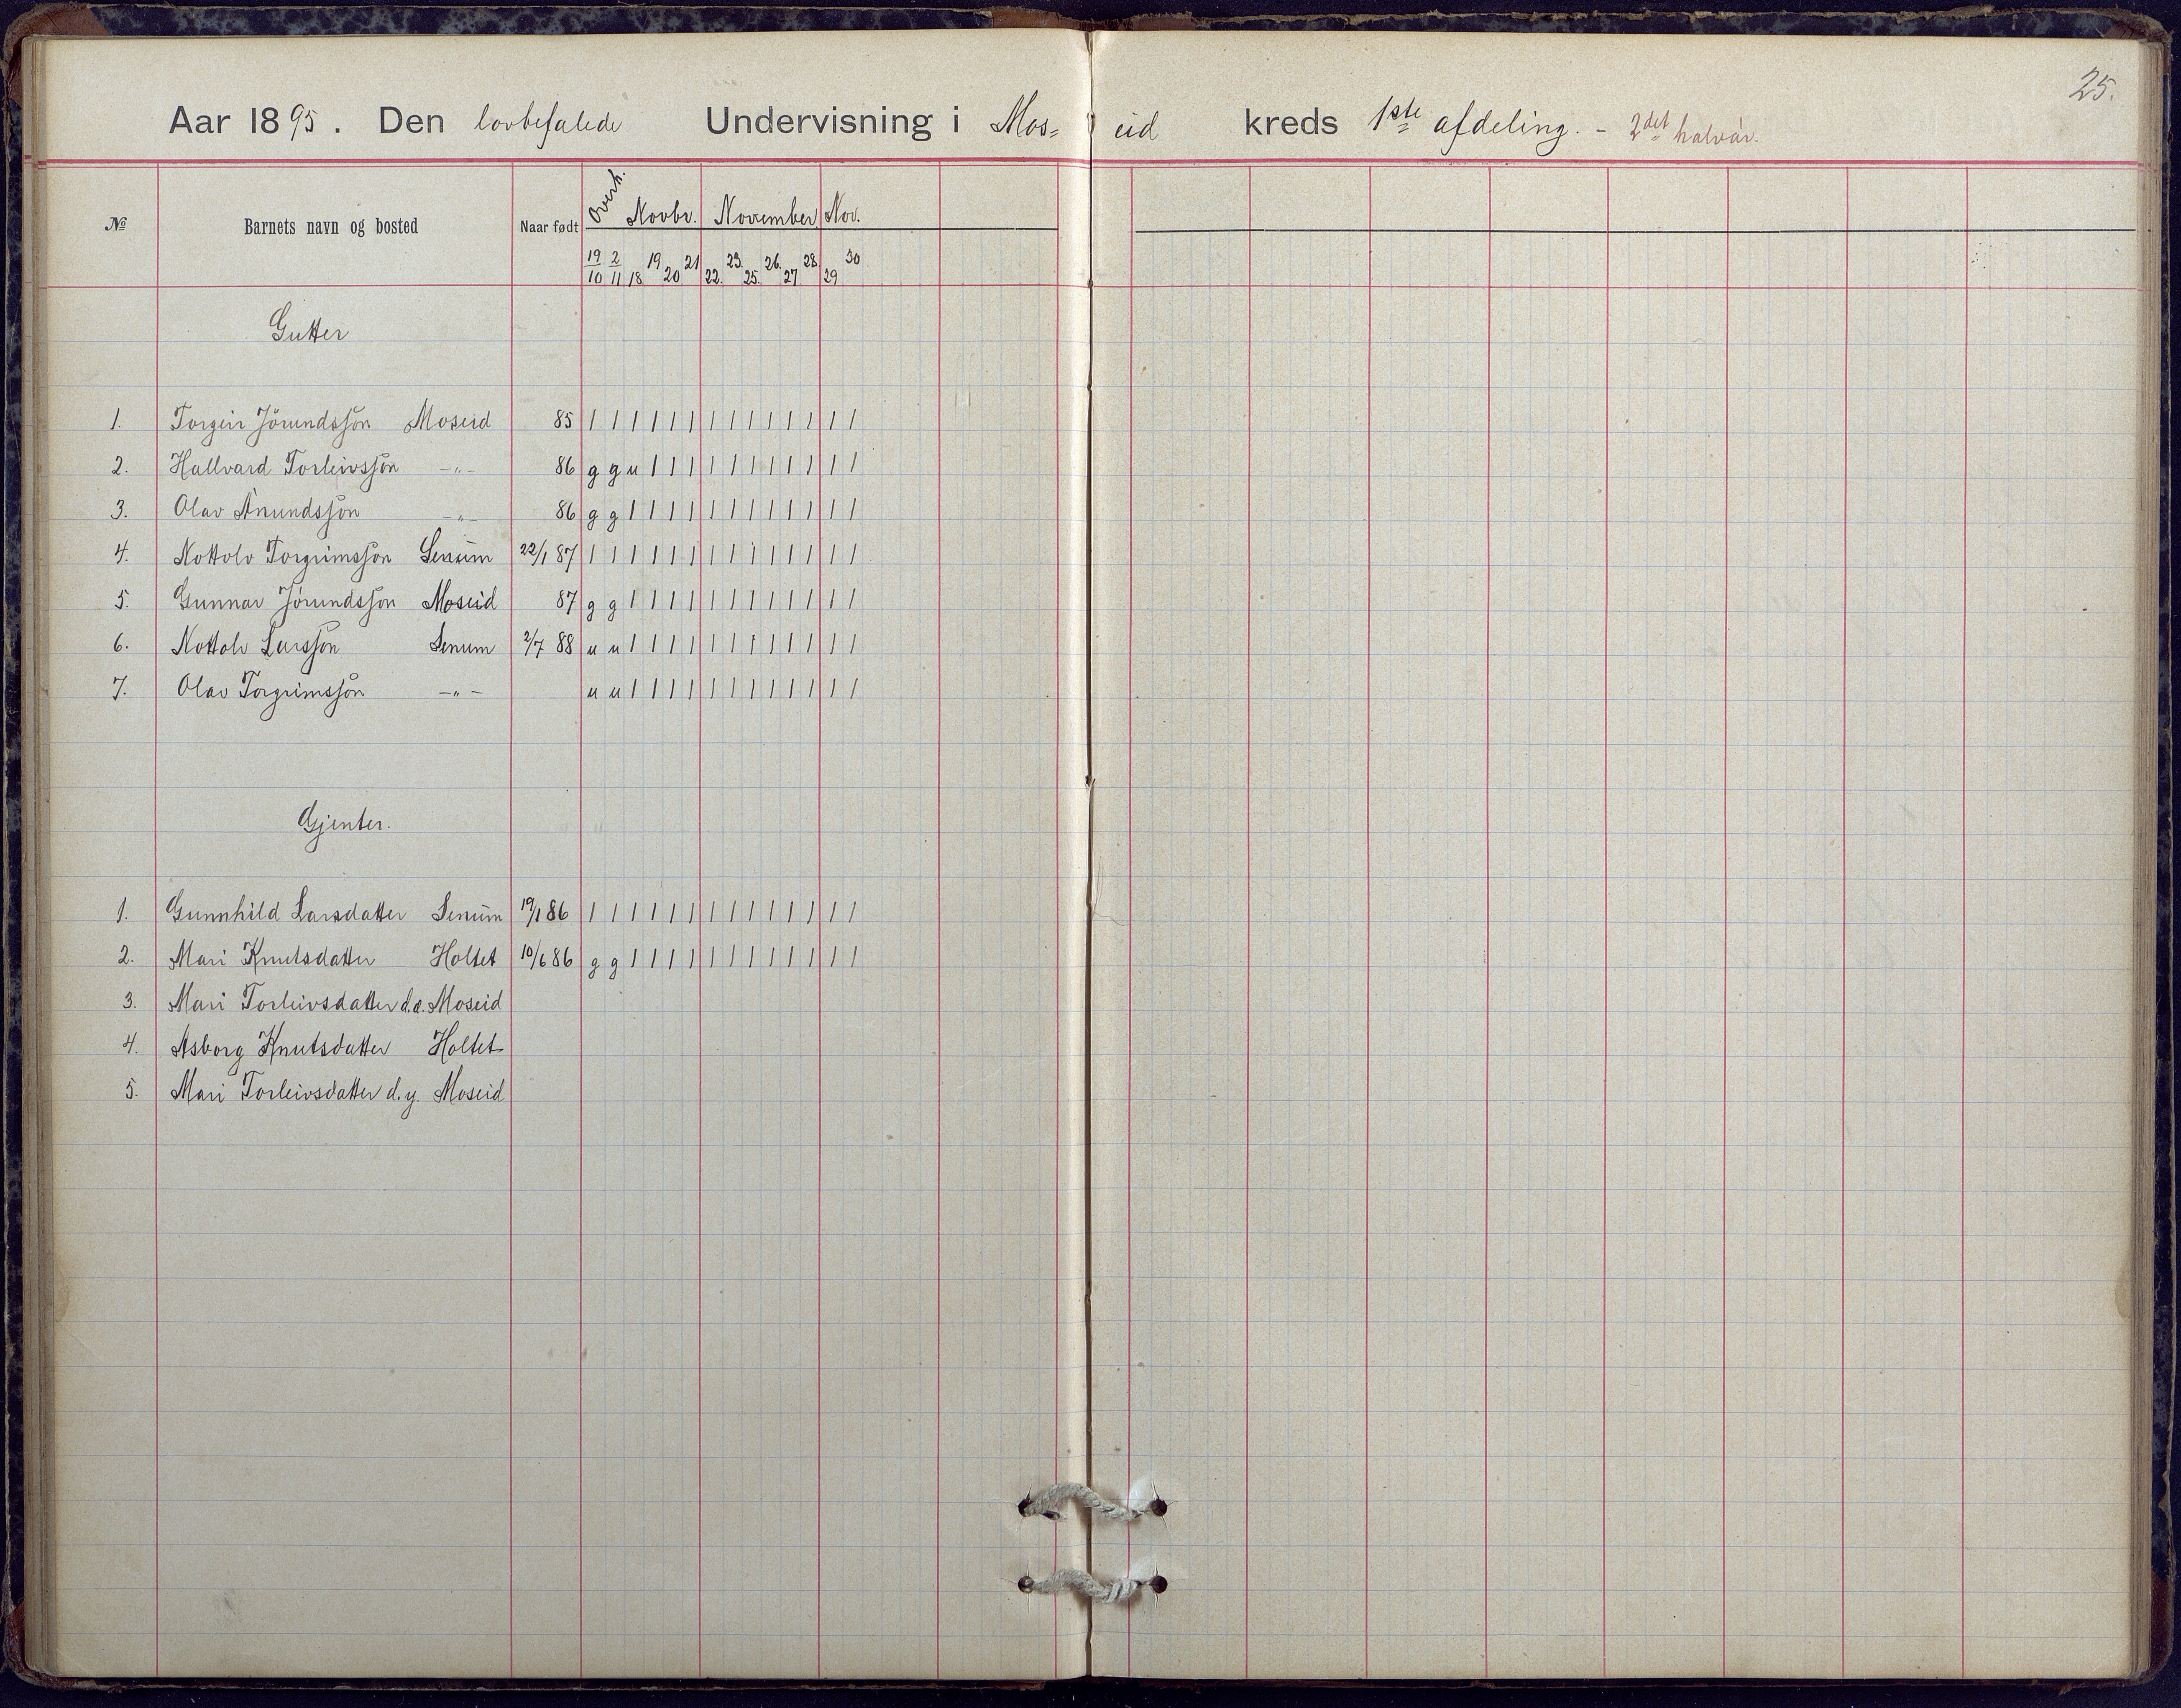 25.
Aar 1895. Den lovbefalede Undervisning i Mos= eid kreds 1ste afdeling. - 2det halvår.
№ Barnets navn og bosted Naar født Overh. Novbr. November Nov.
19/10 2/11 18 19 20 21 22. 23. 25. 26. 27 28. 29 30
Gutter
1. Torgeir Jörundssön Moseid 85 | | | | | | | | | | | | | |
2. Hallvard Torleivssön -"- 86 g g u | | | | | | | | | | |
3. Olav Ånundssön -"- 86 g g | | | | | | | | | | | |
4. Nottolv Torgrimssön Senum 22/1 87 | | | | | | | | | | | | | |
5. Gunnar Jörundssön Moseid 87 g g | | | | | | | | | | | |
6. Nottolv Larssön Senum 2/7 88 u u | | | | | | | | | | | |
7. Olav Torgrimssön -"- u u | | | | | | | | | | | |
Gjenter.
1. Gunnhild Larsdatter Senum 19/1 86 | | | | | | | | | | | | | |
2. Mari Knutsdatter Holtet 10/6 86 g g | | | | | | | | | | | |
3. Mari Torleivsdatter d.æ. Moseid
4. Asborg Knutsdatter Holtet
5. Mari Torleivsdatter d.y. Moseid